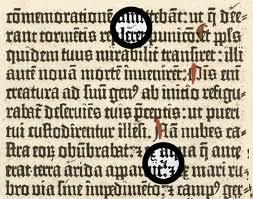 cōmemorationē ut q̄ dee-
rant tormentis punitio: et ppl̄s
quidem tuus mirabilit̄ transiret: illi
autē novā mortē invenirēt. Om̄is em̄
creatura ad suū gen⁹ ab initio refigu-
rabat̄ deserviēs tuis p̄ceptis: ut pueri
tui custodirentur illesi. Nā nubes ca-
stra eoꝝ obūbrabat: et aqua q̄ ante
erat terra arida et ex mari ru-
bro via sine impedimēto: et camp⁹ ger-